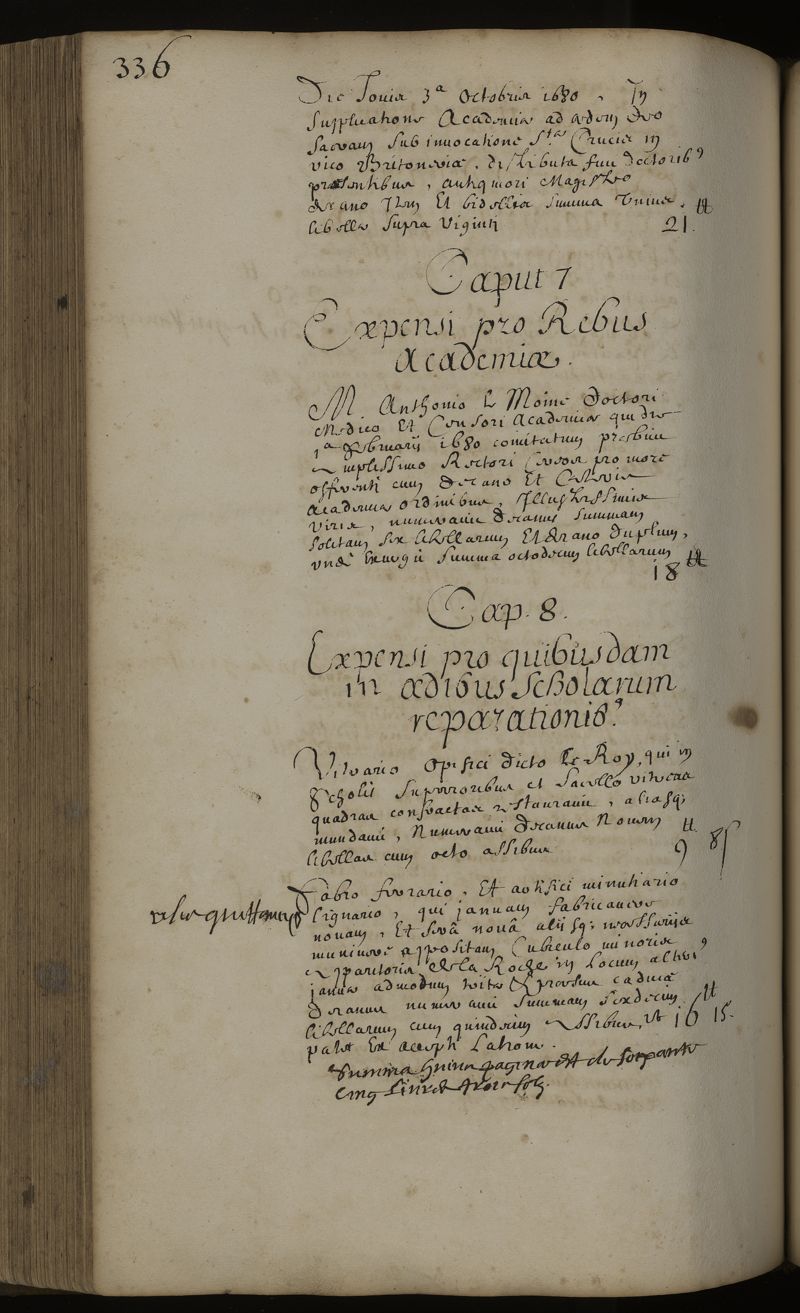 336
Die Jovis 3ª Octobris 1680, In
supplicatione Academiæ ad ædem Deo
sacram sub invocatione Stæ Crucis in
vico Britonniæ, distributa sun doctorib9
præsentibus, antiquiori Magistro
decano Item Et bidellis summa unius
libellæ supra viginti 21.
Caput 7
Expensi pro Rebus
Academiæ.
M. Anthonio le Moine Doctori
Medico Et Censori Academiæ qui die
1ª februarij 1680 comitatum præbuit
amplissimo Rectori Cereos pro more
offerenti cum decano Et Cæteris
Academiæ ordinibus, Illustrissimis
viris, numeravit decanus summam
solitam sex libellarum Et decano duplum,
unde exurgit summa octodecim libellarum
18 ₶
Cap. 8.
Expensi pro quibusdam
in ædibus Scholarum
reparationib9.
Vitrario opifici dicto le Roy, qui in
scholis superioribus et sacello vitreas
quadras confractas restauravit, aliasq;
mundavit, Numeravit decanus Novem ₶
libellas cum octo assibus 9 8ſ
Fabro ferrario, Et artifici minutiario
lignario, qui januam fabricavere
novam, Et serâ novâ alijsq; necessarijs
munivere appositam Cubiculo minoris
Apparitoris de la Roche in locum alteri9
januæ admodum Et prorsus caducæ
decanus numeravit summam sexdecim ₶
libellarum cum quindecim assibus, ut 16 15.
patet Ex accepti latione.
Summa huius paginæ est de soixante
cinq livres trois solz.